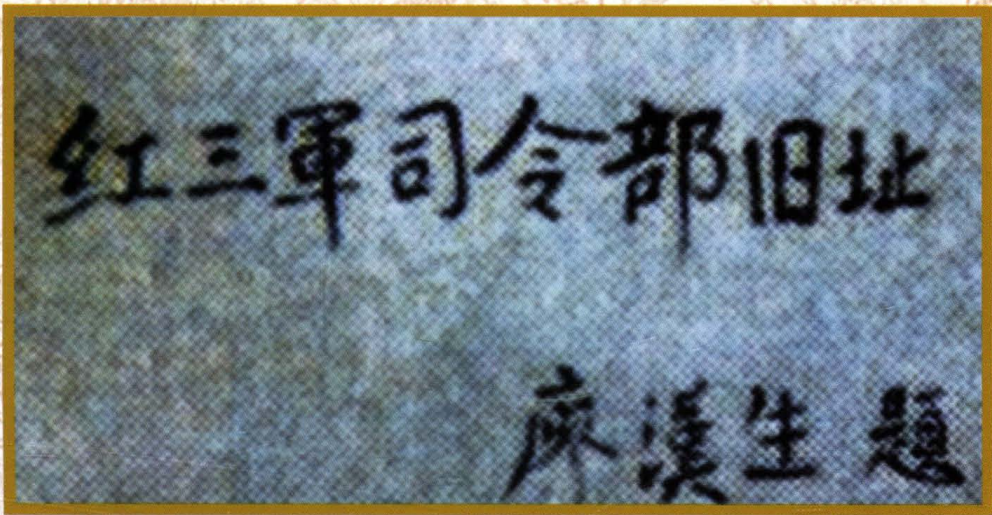 红三軍司令部旧址
廖漢生 題